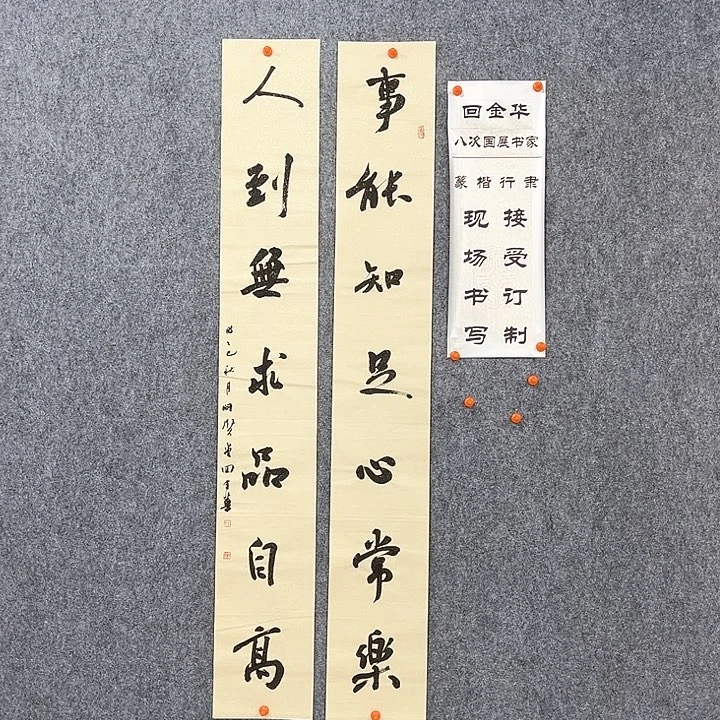 事能知足心常樂
人到無求品自高
回金华
八次国展书家
篆楷行隶
接受订制
现场书写